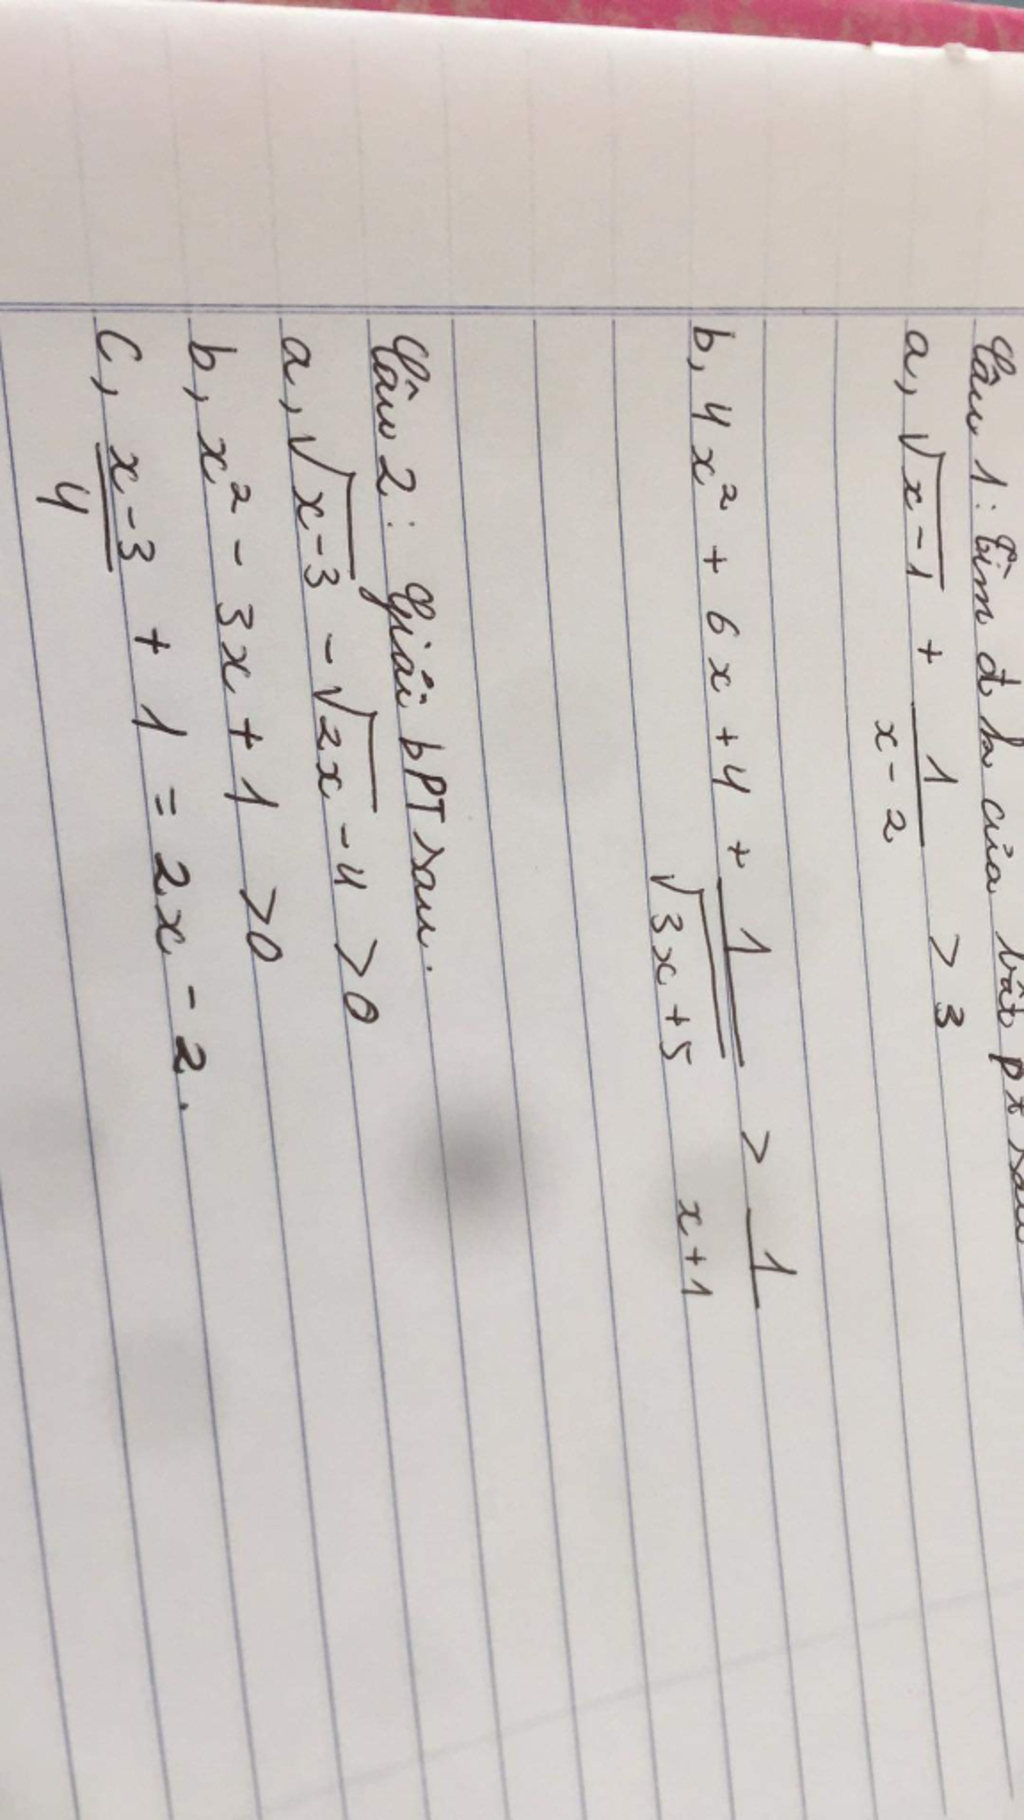 Câu 1: Tìm đk của bất pt sau
a, √x-1 + 1/x-2 > 3
b, 4x² + 6x + 4 + 1/√3x+5 > 1/x+1
Câu 2: Giải bPT sau.
a, √x-3 - √2x-4 > 0
b, x² - 3x + 1 > 0
C, x-3/4 + 1 = 2x - 2.